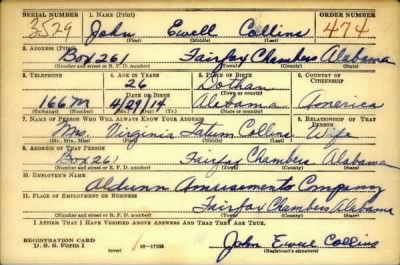 SERIAL NUMBER 1. NAME (Print) ORDER NUMBER
3529 John Ewell Collins 474
(First) (Middle) (Last)
2. ADDRESS (Print)
Box 261 Fairfax Chambers Alabama
(Number and street or R. F. D. number) (Town) (County) (State)
3. TELEPHONE 4. AGE IN YEARS 5. PLACE OF BIRTH 6. COUNTRY OF CITIZENSHIP
26 Dothan
DATE OF BIRTH (Town or county)
166M 4/29/14 Alabama America
(Exchange) (Number) (Mo.) (Day) (Yr.) (State or country)
7. NAME OF PERSON WHO WILL ALWAYS KNOW YOUR ADDRESS 8. RELATIONSHIP OF THAT PERSON
Mrs. Virginia Tatum Collins Wife
(Mr., Mrs., Miss) (First) (Middle) (Last)
9. ADDRESS OF THAT PERSON
Box 261 Fairfax Chambers Alabama
(Number and street or R. F. D. number) (Town) (County) (State)
10. EMPLOYER'S NAME
Amusements Company
11. PLACE OF EMPLOYMENT OR BUSINESS
Fairfax Chambers Alabama
(Number and street or R. F. D. number) (Town) (County) (State)
I AFFIRM THAT I HAVE VERIFIED ABOVE ANSWERS AND THAT THEY ARE TRUE.
REGISTRATION CARD
D. S. S. Form 1 John Ewell Collins
(Registrant's signature)